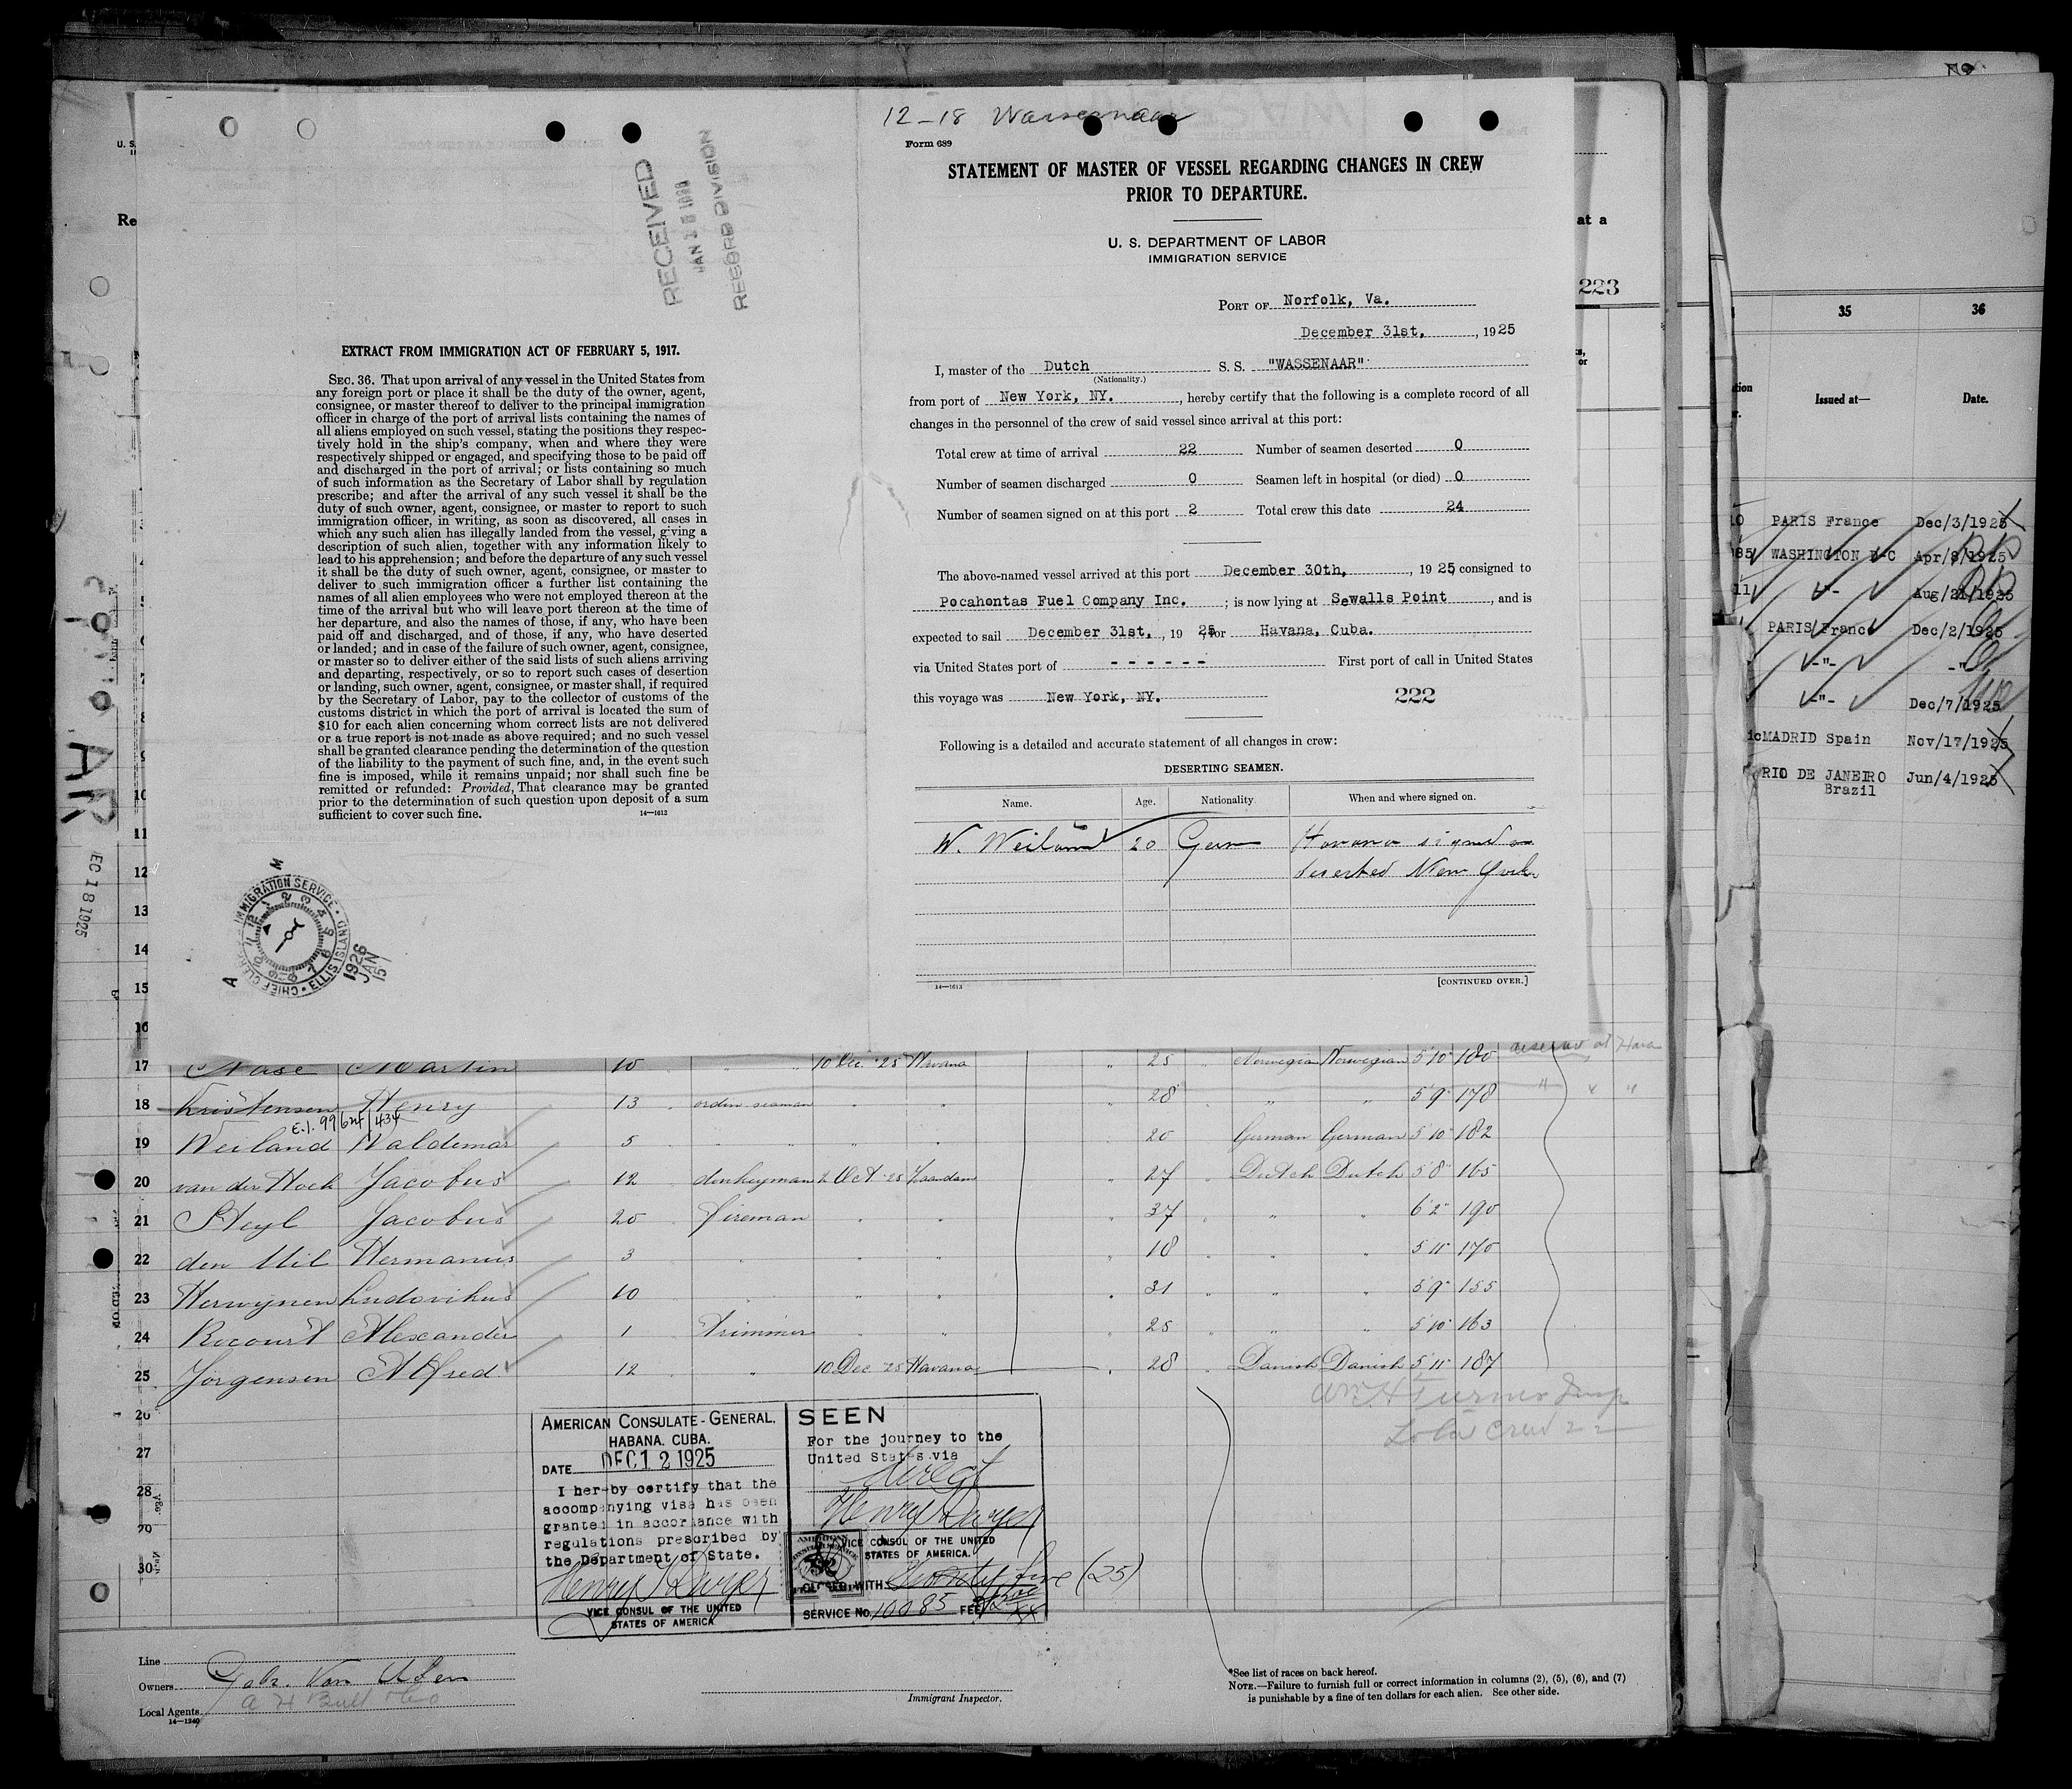 12-18 Wassenaar
Form 689
STATEMENT OF MASTER OF VESSEL REGARDING CHANGES IN CREW
PRIOR TO DEPARTURE.
U. S. DEPARTMENT OF LABOR
IMMIGRATION SERVICE
PORT OF Norfolk, Va.
December 31st, , 1925
I, master of the Dutch S. S. "WASSENAAR"
(Nationality.)
from port of New York, NY. , hereby certify that the following is a complete record of all
changes in the personnel of the crew of said vessel since arrival at this port:
Total crew at time of arrival 22 Number of seamen deserted 0
Number of seamen discharged 0 Seamen left in hospital (or died) 0
Number of seamen signed on at this port 2 Total crew this date 24
The above-named vessel arrived at this port December 30th, , 1925, consigned to
Pocahontas Fuel Company Inc. ; is now lying at Sewalls Point , and is
expected to sail December 31st. , 19 25, for Havana, Cuba.
via United States port of - - - - - - First port of call in United States
this voyage was New York, NY. 222
Following is a detailed and accurate statement of all changes in crew:
DESERTING SEAMEN.
Name. Age. Nationality. When and where signed on.
W. Weiland 20 Germ Havana signed on
deserted New York
14—1613 [CONTINUED OVER.]
RECEIVED
RECORD DIVISION
EXTRACT FROM IMMIGRATION ACT OF FEBRUARY 5, 1917.
SEC. 36. That upon arrival of any vessel in the United States from
any foreign port or place it shall be the duty of the owner, agent,
consignee, or master thereof to deliver to the principal immigration
officer in charge of the port of arrival lists containing the names of
all aliens employed on such vessel, stating the positions they respec-
tively hold in the ship's company, when and where they were
respectively shipped or engaged, and specifying those to be paid off
and discharged in the port of arrival; or lists containing so much
of such information as the Secretary of Labor shall by regulation
prescribe; and after the arrival of any such vessel it shall be the
duty of such owner, agent, consignee, or master to report to such
immigration officer, in writing, as soon as discovered, all cases in
which any such alien has illegally landed from the vessel, giving a
description of such alien, together with any information likely to
lead to his apprehension; and before the departure of any such vessel
it shall be the duty of such owner, agent, consignee, or master to
deliver to such immigration officer a further list containing the
names of all alien employees who were not employed thereon at the
time of the arrival but who will leave port thereon at the time of
her departure, and also the names of those, if any, who have been
paid off and discharged, and of those, if any, who have deserted
or landed; and in case of the failure of such owner, agent, consignee,
or master so to deliver either of the said lists of such aliens arriving
and departing, respectively, or so to report such cases of desertion
or landing, such owner, agent, consignee, or master shall, if required
by the Secretary of Labor, pay to the collector of customs of the
customs district in which the port of arrival is located the sum of
$10 for each alien concerning whom correct lists are not delivered
or a true report is not made as above required; and no such vessel
shall be granted clearance pending the determination of the question
of the liability to the payment of such fine, and, in the event such
fine is imposed, while it remains unpaid; nor shall such fine be
remitted or refunded: Provided, That clearance may be granted
prior to the determination of such question upon deposit of a sum
sufficient to cover such fine. 14—1613
IMMIGRATION SERVICE · ELLIS ISLAND · CHIEF CLERK
1926
JAN
15
EC 18 1925
at a
223
35 36
Issued at— Date.
PARIS France Dec/3/1925
85 WASHINGTON D-C Apr/8/1925
11 -"- Aug/21/1925
PARIS France Dec/2/1925
-"- -"-
-"- Dec/7/1925
MADRID Spain Nov/17/1925
RIO DE JANEIRO Jun/4/1925
Brazil
11
12
13
14
15
16
17 Martin 10 " " 10 Dec. '25 Havana " 25 " Norwegian Norwegian 5 10 180
18 Kristensen Henry 13 ordin seaman " " " 28 " " 5 9 178 " " "
19 Weiland Waldemar 5 " " " " 20 German German 5 10 182
20 van der Hoek Jacobus 12 donkeyman 2 Oct '25 Zaandam " 27 " Dutch Dutch 5 8 165
21 Heyl Jacobus 20 fireman " " " 37 " " " 6 2 190
22 den Uil Hermanus 3 " " " " 18 " " " 5 11 170
23 Herwynen Ludovikus 10 " " " " 31 " " " 5 9 155
24 Rocourt Alexander 1 Trimmer " " " 25 " " " 5 10 163
25 Jorgensen Alfred 12 " 10 Dec '25 Havana " 28 " Danish Danish 5 11 187
26
27
28
29
30
Turner Insp
Total Crew 22
AMERICAN CONSULATE-GENERAL.
HABANA. CUBA.
DATE DEC 12 1925
I hereby certify that the
accompanying visa has been
granted in accordance with
regulations prescribed by
the Department of State.
Henry Dwyer
VICE CONSUL OF THE UNITED
STATES OF AMERICA
SEEN
For the journey to the
United States via
direct
Henry Dwyer
VICE CONSUL OF THE UNITED
STATES OF AMERICA.
WITH Twenty five (25)
SERVICE No. 10085 FEE
Line
Owners
Local Agents A H Bull & Co
14—1240
Immigrant Inspector.
*See list of races on back hereof.
NOTE.—Failure to furnish full or correct information in columns (2), (5), (6), and (7)
is punishable by a fine of ten dollars for each alien. See other side.